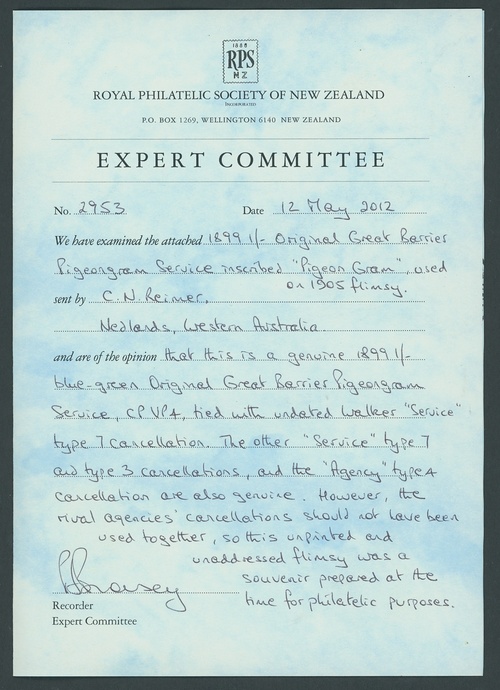 1888
RPS
NZ
ROYAL PHILATELIC SOCIETY OF NEW ZEALAND
INCORPORATED
P.O. BOX 1269, WELLINGTON 6140 NEW ZEALAND
EXPERT COMMITTEE
No. 2953 Date 12 May 2012
We have examined the attached 1899 1/- Original Great Barrier
Pigeongram Service inscribed "Pigeon Gram", used
on 1905 flimsy.
sent by C.N. Reimer,
Nedlands, Western Australia.
and are of the opinion that this is a genuine 1899 1/-
blue-green Original Great Barrier Pigeongram
Service, CP VP4, tied with undated Walker "Service"
type 7 cancellation. The other "Service" type 7
and type 3 cancellations, and the "Agency" type 4
cancellation are also genuine. However, the
rival agencies' cancellations should not have been
used together, so this unprinted and
unaddressed flimsy was a
souvenir prepared at the
time for philatelic purposes.
Recorder
Expert Committee